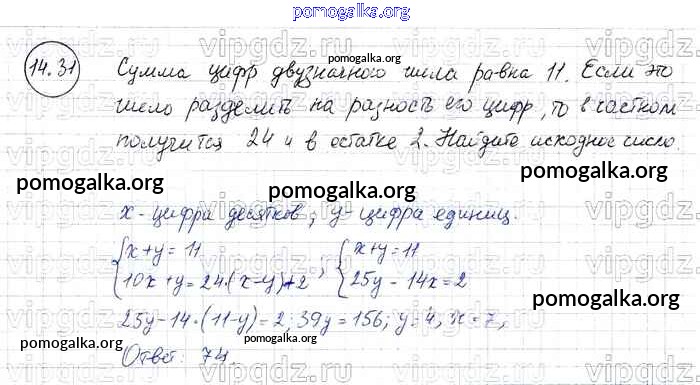 pomogalka.org
14.31
Сумма цифр двузначного числа равна 11. Если это
число разделить на разность его цифр, то в частном
получится 24 и в остатке 2. Найдите исходное число.
x - цифра десятков; y - цифра единиц.
{x+y=11
10x+y=24·(x-y)+2; {x+y=11
25y-14x=2
25y-14·(11-y)=2; 39y=156; y=4, x=7,
Ответ: 74.
pomogalka.org
pomogalka.org
pomogalka.org
pomogalka.org
pomogalka.org
pomogalka.org
pomogalka.org
pomogalka.org
pomogalka.org
vipgdz.ru
vipgdz.ru
vipgdz.ru
vipgdz.ru